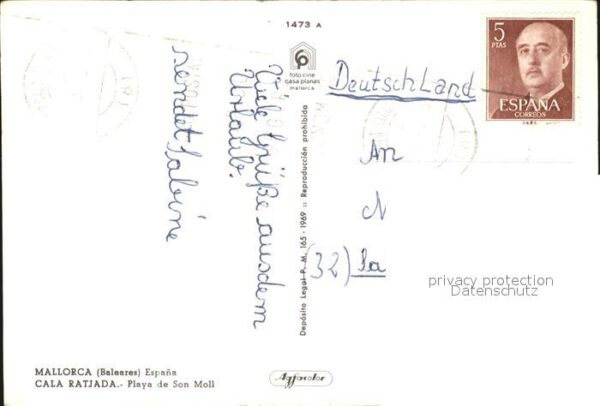 1473 A
foto cine
casa planas
mallorca
Viele Grüße ausdem
Urlaub.
sendet Sabine
Depósito Legal P. M. 165 - 1969 :: Reproducción prohibida
Deutschland
5
PTAS
ESPAÑA
CORREOS
An
N
(32) Sa
privacy protection
Datenschutz
MALLORCA (Baleares) España
CALA RATJADA.- Playa de Son Moll
Agfacolor